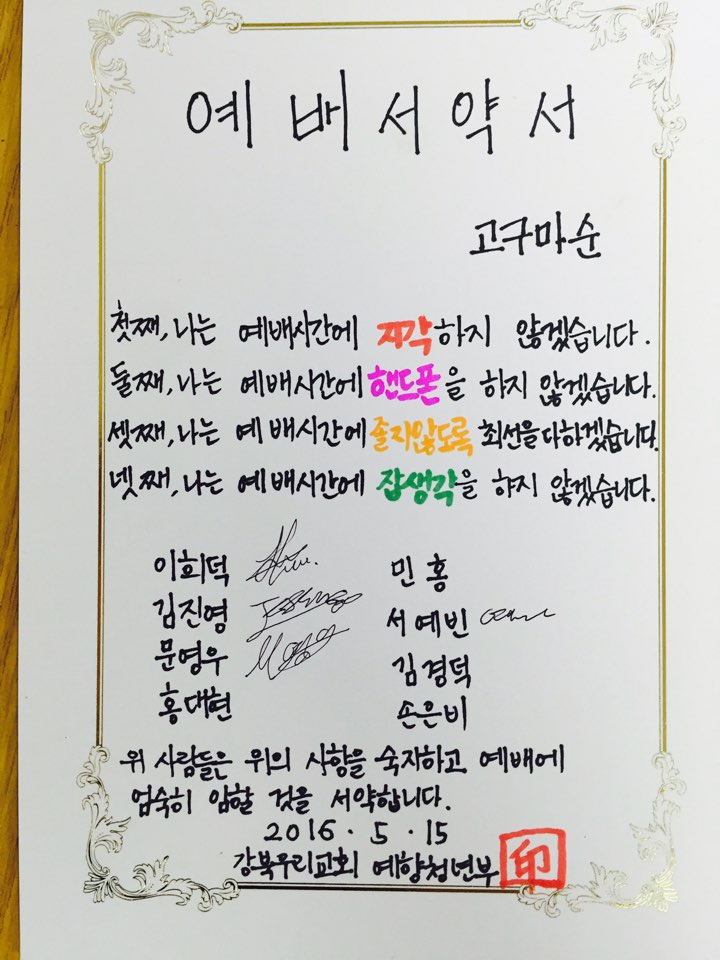 예배서약서
고구마순
첫째, 나는 예배시간에 지각하지 않겠습니다.
둘째, 나는 예배시간에 핸드폰을 하지 않겠습니다.
셋째, 나는 예배시간에 졸지않도록 최선을다하겠습니다.
넷째, 나는 예배시간에 잡생각을 하지 않겠습니다.
이희덕 민홍
김진영 서예빈
문영우 김경덕
홍대현 손은비
위 사람들은 위의 사항을 숙지하고 예배에
엄숙히 임할 것을 서약합니다.
2016 · 5 · 15
강북우리교회 예향청년부 印